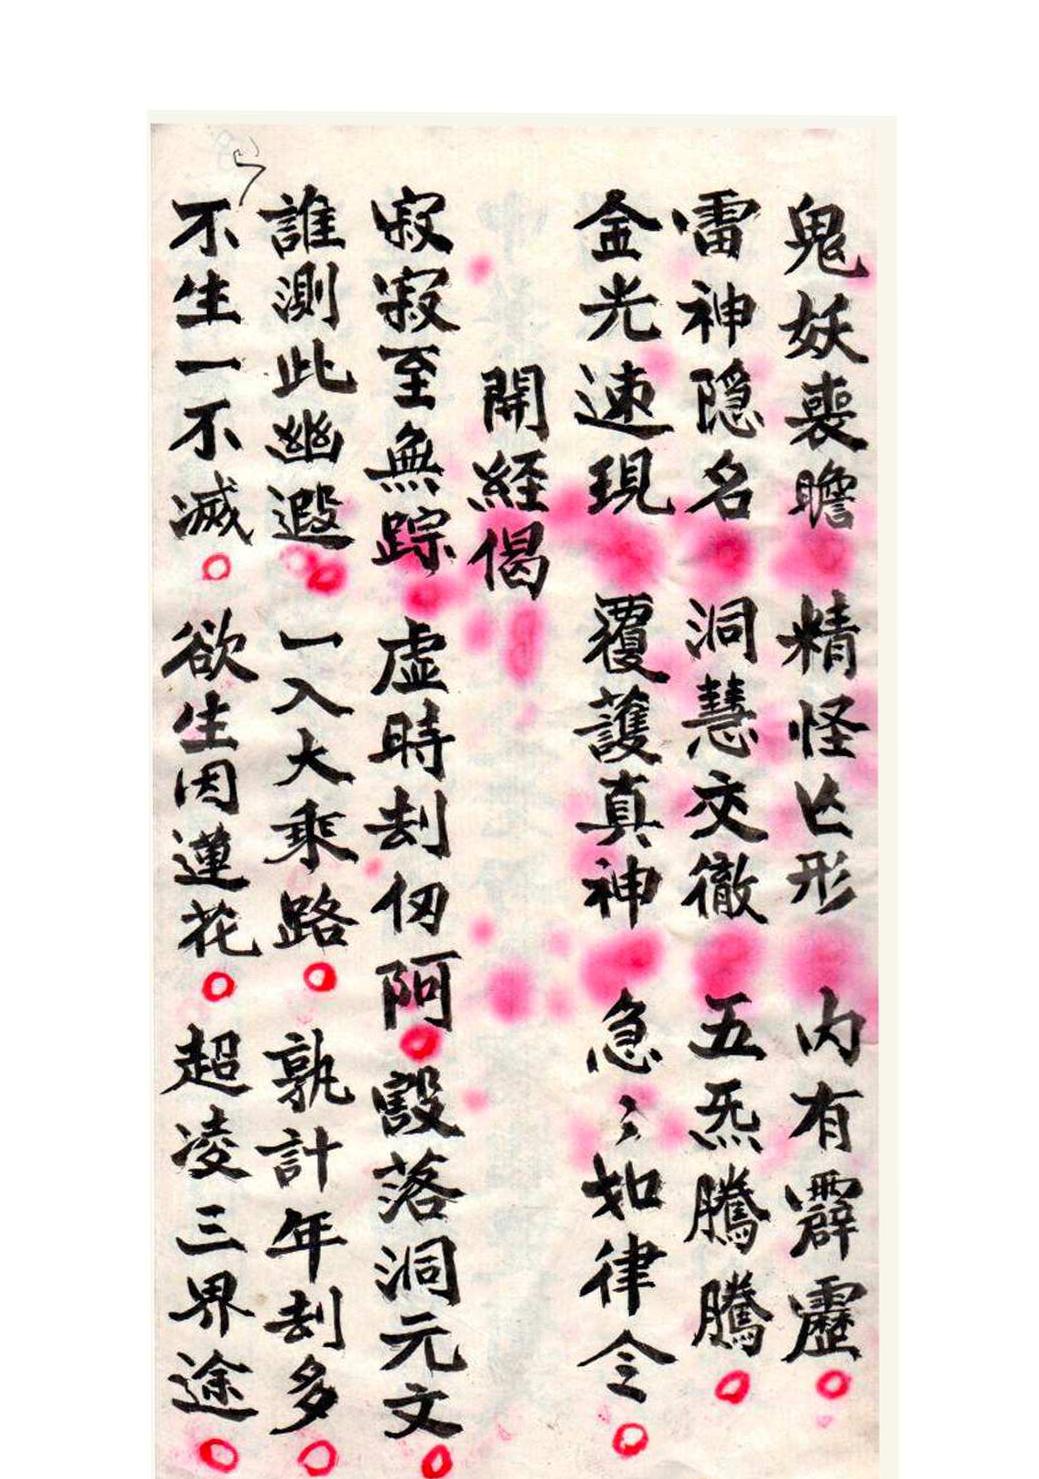 鬼妖喪瞻 精怪亾形 内有霹靂
雷神隐名 洞慧交徹 五炁騰騰
金光速現 覆護真神 急〻如律令
開経偈
寂寂至無踪 虚時刦仞阿 豁落洞元文
誰測此幽遐 一入大乘路 孰計年刦多
不生一不滅 欲生因蓮花 超凌三界途